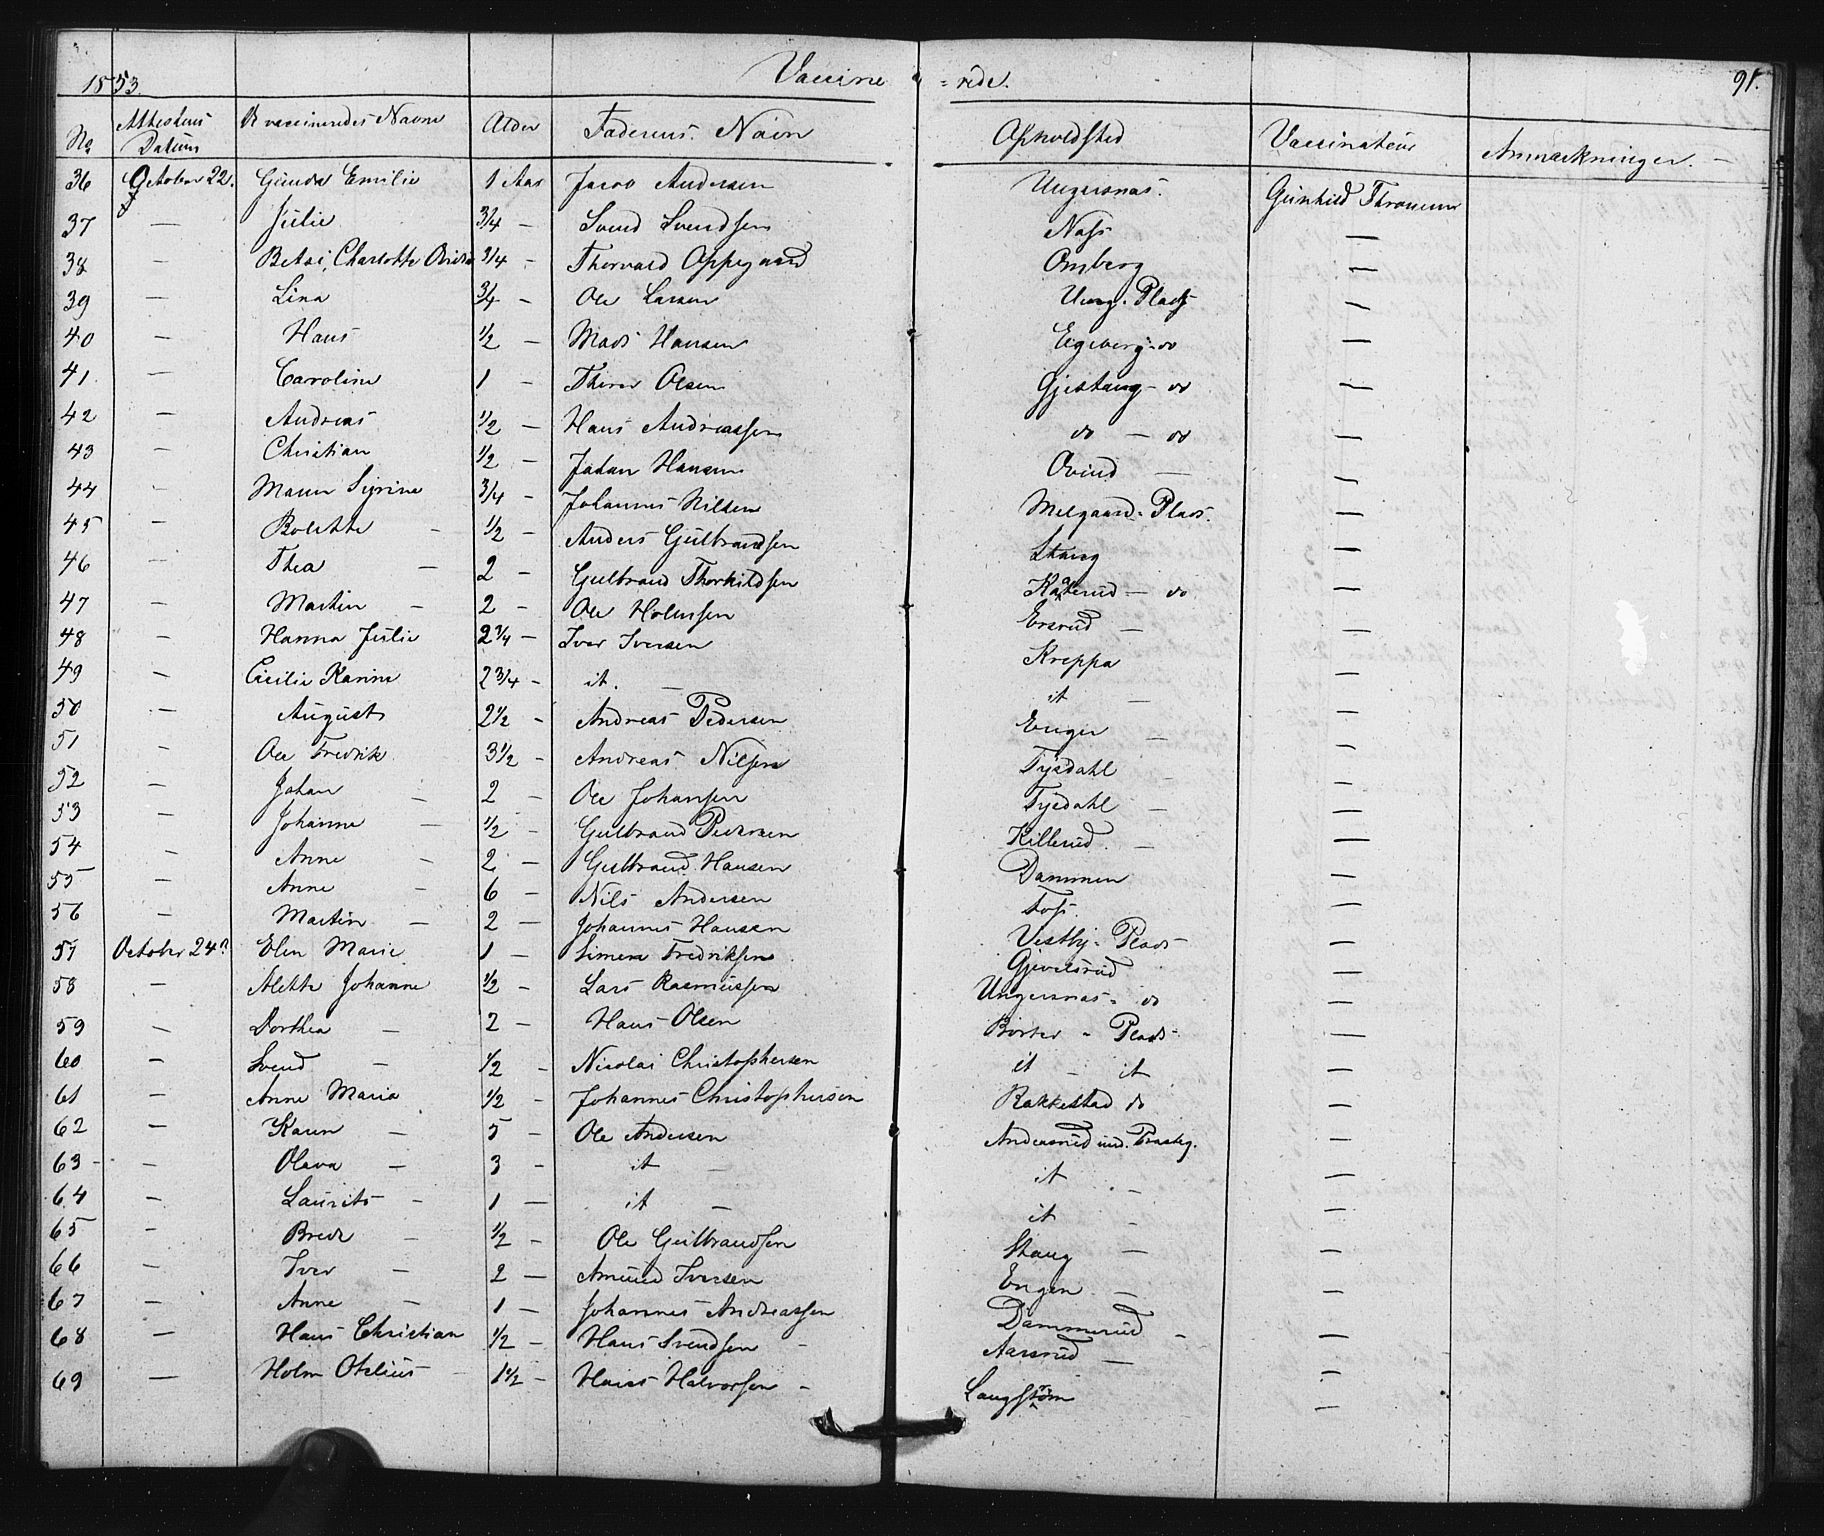 1853. Vaccine = rede. 91.
No Attestens Datum De vaccineredes Navne Alder Faderens Navn Opholdsted Vaccinateur Anmærkninger.
36 October 22. Gunda Emilie 1 Aar Jacob Andersen Ungersnæs. Gunhild Thronsen
37 — Julie 3/4 — Svend Svendsen Næss —
38 — Betsi, Charlotte 3/4 - Thorvald Oppegaard Omberg —
39 — Lina 3/4 — Ole Larsen Ung. Plads —
40 — Hans 1/2 — Mads Hansen Egeberg - do —
41. — Caroline 1 — Thore Olsen Gjestang - do —
42 — Andreas 1/2 — Hans Andreassen do — do —
43 — Christian 1/2 — Johan Hansen Ovind — —
44 — Maren Syrine 3/4 — Johannes Nilsen Melgaard - Plads. —
45 — Bolette — 1/2 — Anders Gulbrandsen Stang —
46 — Thea — 2 — Gulbrand Thorkildsen Katerud — do —
47 — Martin — 2 — Ole Holmsen Ersrud — —
48 — Hanna Julie 2 1/4 — Iver Iversen Kreppa —
49 — Cicilie Karine 2 3/4 — it. — it — —
50 — August 2 1/2 - Andreas Pedersen Enger — —
51 — Ole Fredrik 3 1/2 - Andreas Nilsen Tysdahl — —
52 — Johan — 2 — Ole Johansen Tysdahl — —
53 — Johanne — 1/2 — Gulbrand Pedersen Killerud. — —
54 — Anne — 2 — Gulbrand Hansen Dammen —
55 — Anne — 6 — Nils Andersen Foss. —
56 — Martin — 2 — Johannes Hansen Vestby - Plads —
57 October 24? Elen Marie 1 — Simen Fredriksen Gjevelsrud —
58 — Alette Johanne 1/2 — Lars Rasmussen Ungersnæs - do —
59 — Dorthea — 2 — Hans Olsen Börter - Plads —
60 — Svend — 1/2 - Nicolai Christophersen it - it —
61 — Anne Maria 1/2 — Johannes Christophersen Rakkestad do —
62 — Karen — 5 — Ole Andersen Andersrud und. Præsteg. —
63 - — Olava — 3 — it — it — —
64 — Laurits — 1 — it — it — —
65 — Brede — 1/2 — Ole Gulbrandsen Stang — —
66 — Iver — 2 — Amund Iversen Engen — —
67 — Anne — 1 — Johannes Andreassen Dammerud — —
68 — Hans Christian 1/2 — Hans Svendsen - Aarsrud — —
69 — Holm Otelius - 1 1/2 — Hans Halvorsen - Langström —